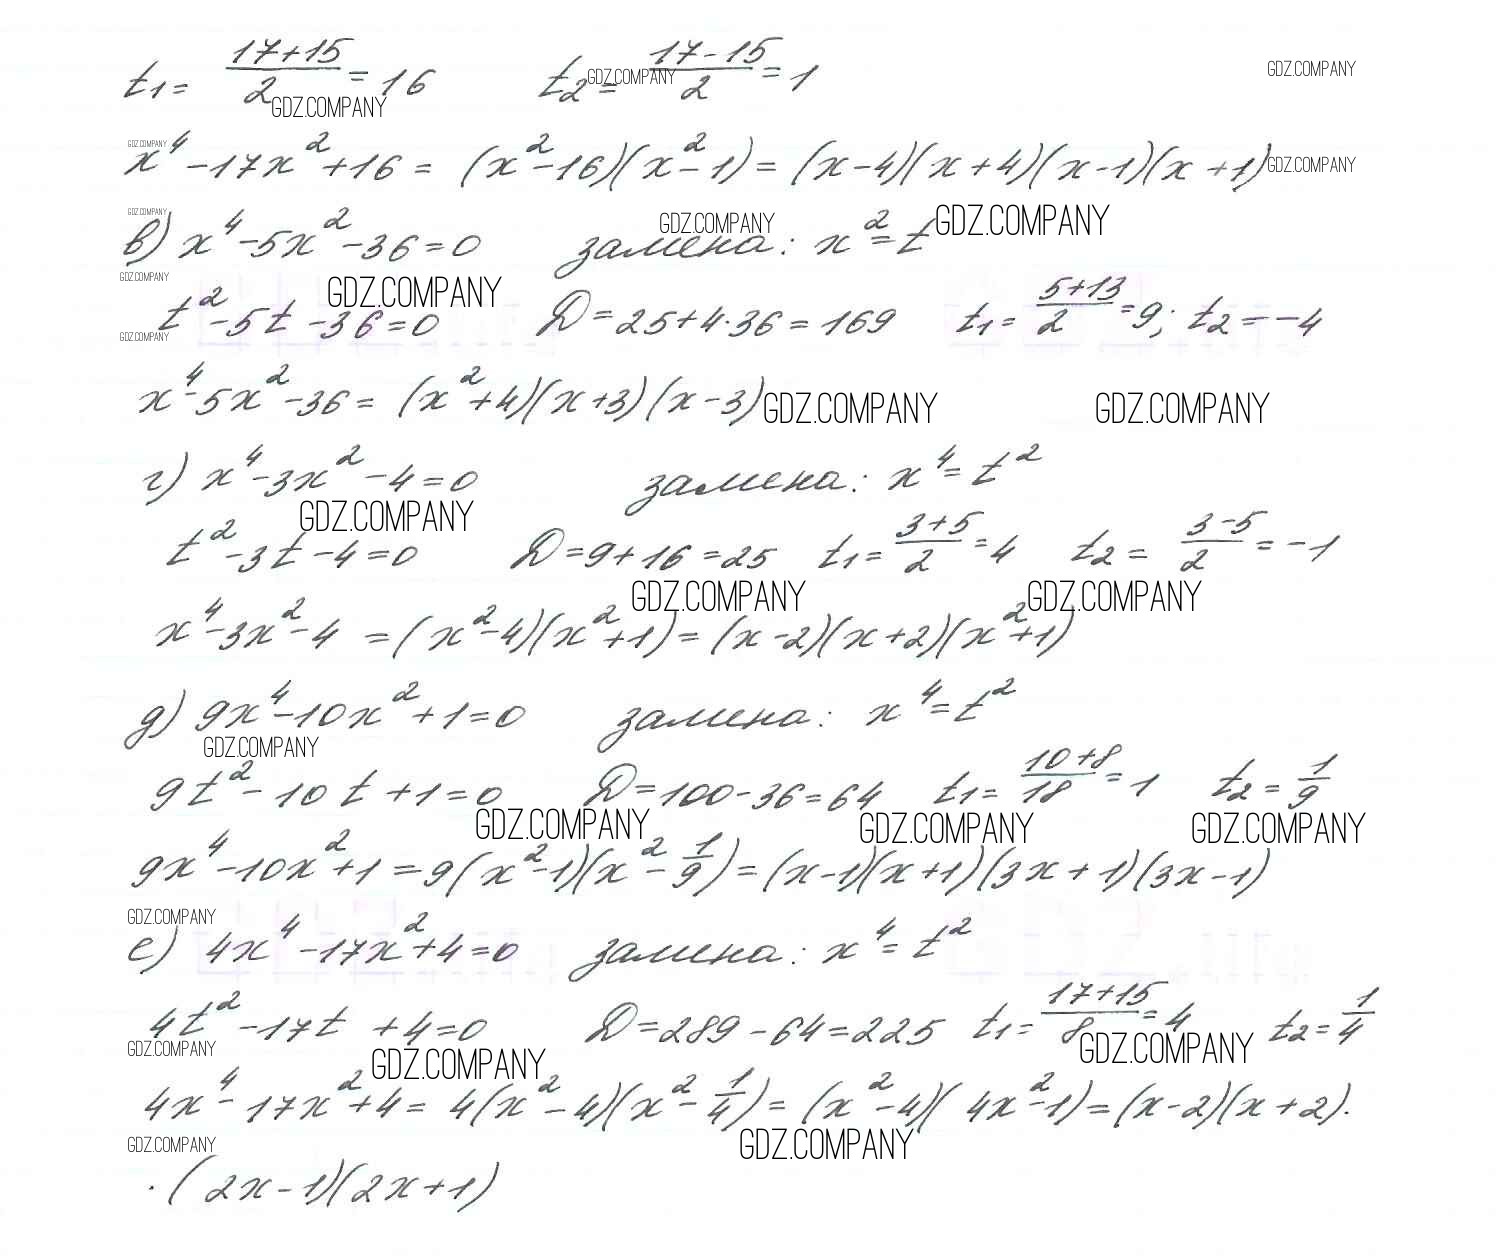 t₁ = (17+15)/2 = 16 t₂ = (17-15)/2 = 1 GDZ.COMPANY
GDZ.COMPANY GDZ.COMPANY
GDZ.COMPANY
x⁴ - 17x² + 16 = (x² - 16)(x² - 1) = (x-4)(x+4)(x-1)(x+1) GDZ.COMPANY
GDZ.COMPANY
в) x⁴ - 5x² - 36 = 0 замена: x² = t GDZ.COMPANY GDZ.COMPANY
GDZ.COMPANY GDZ.COMPANY
t² - 5t - 36 = 0 D = 25 + 4·36 = 169 t₁ = (5+13)/2 = 9; t₂ = -4
GDZ.COMPANY
x⁴ - 5x² - 36 = (x² + 4)(x+3)(x-3) GDZ.COMPANY GDZ.COMPANY
г) x⁴ - 3x² - 4 = 0 замена: x⁴ = t²
GDZ.COMPANY
t² - 3t - 4 = 0 D = 9 + 16 = 25 t₁ = (3+5)/2 = 4 t₂ = (3-5)/2 = -1
GDZ.COMPANY GDZ.COMPANY
x⁴ - 3x² - 4 = (x² - 4)(x² + 1) = (x-2)(x+2)(x² + 1)
д) 9x⁴ - 10x² + 1 = 0 замена: x⁴ = t²
GDZ.COMPANY
9t² - 10t + 1 = 0 D = 100 - 36 = 64 t₁ = (10+8)/18 = 1 t₂ = 1/9
GDZ.COMPANY GDZ.COMPANY GDZ.COMPANY
9x⁴ - 10x² + 1 = 9(x² - 1)(x² - 1/9) = (x-1)(x+1)(3x+1)(3x-1)
GDZ.COMPANY
е) 4x⁴ - 17x² + 4 = 0 замена: x⁴ = t²
4t² - 17t + 4 = 0 D = 289 - 64 = 225 t₁ = (17+15)/8 = 4 t₂ = 1/4
GDZ.COMPANY GDZ.COMPANY GDZ.COMPANY
4x⁴ - 17x² + 4 = 4(x² - 4)(x² - 1/4) = (x² - 4)(4x² - 1) = (x-2)(x+2)·
GDZ.COMPANY GDZ.COMPANY
·(2x-1)(2x+1)